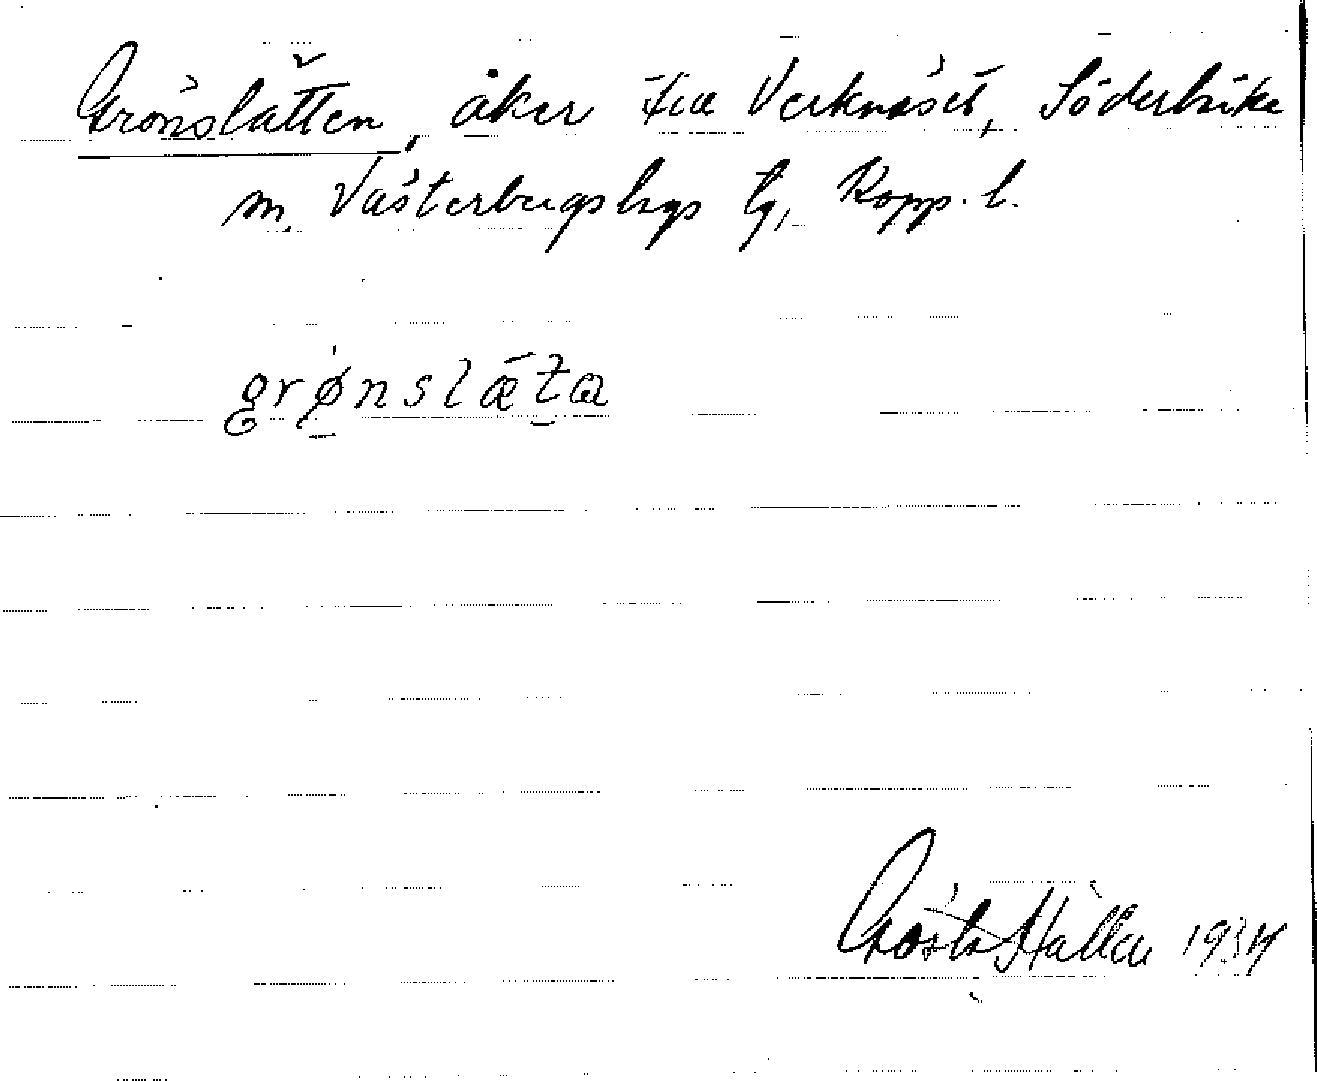 Grönslätten, åker Verknäset, Söderbärke
sn, Västerbergslags tg, Kopp. l.
grønslæta
Gösta Hallén 1934